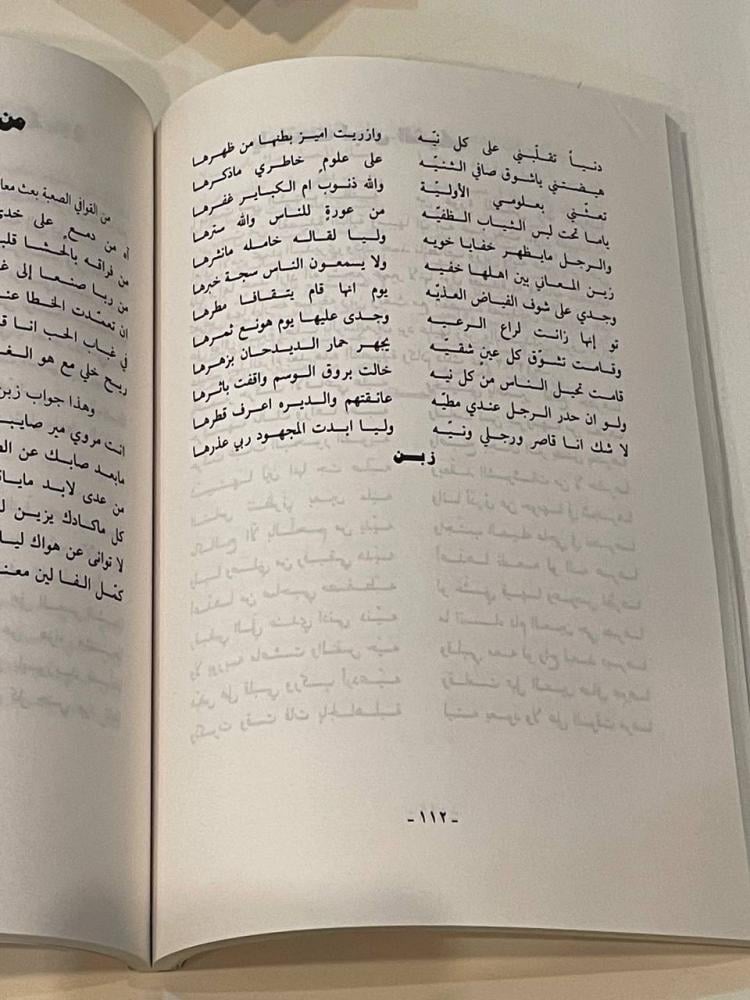 دنياً تقلّبني على كل نيّه وازريت اميز بطنها من ظهرها
هيضتني ياشوق صافي الثنيّه على علومٍ خاطري ماذكرها
تعنّني بعلومي الأوليّة والله ذنوب ام الكباير غفرها
ياما تحت لبس الثياب الظفيّه من عورةٍ للناس والله سترها
والرجل مايظهر خفايا خويه وليا لقاله خامله مانشرها
زين المعاني بين اهلها خفيه ولا يسمعون الناس سجة خبرها
وجدي على شوف الفياض العذيّه يوم انها قام يتقافا مطرها
تو إنها زانت لراع الرعيه وجدى عليها يوم هونع ثمرها
وقامت تشوّق كل عينٍ شقيّه يجهر حمار الديدحان بزهرها
قامت تخيل الناس من كل نيه خالت بروق الوسم واقفت باثرها
ولو ان حدر الرجل عندي مطيّه عانقتهم والديره اعرف قطرها
لا شك انا قاصر ورجلي ونيّه وليا ابدت المجهود ربي عذرها
زبن
- ١١٢ -
من
من القوافي الصعبة بعث معا
آه من دمعٍ على خدي
من فراقه بالحشا قلب
من ربا صنعا إلى غ
ان تعمّدت الخطا عند
في غياب الحب انا ق
ربح خلي مع هو الغ
وهذا جواب زبن
انت مروي مير صايب
مابعد صابك عن ال
من عدى لابد مايا
كل ماكادك يزين ل
لا توانى عن هواك ليا
كمّل الفا لين معن